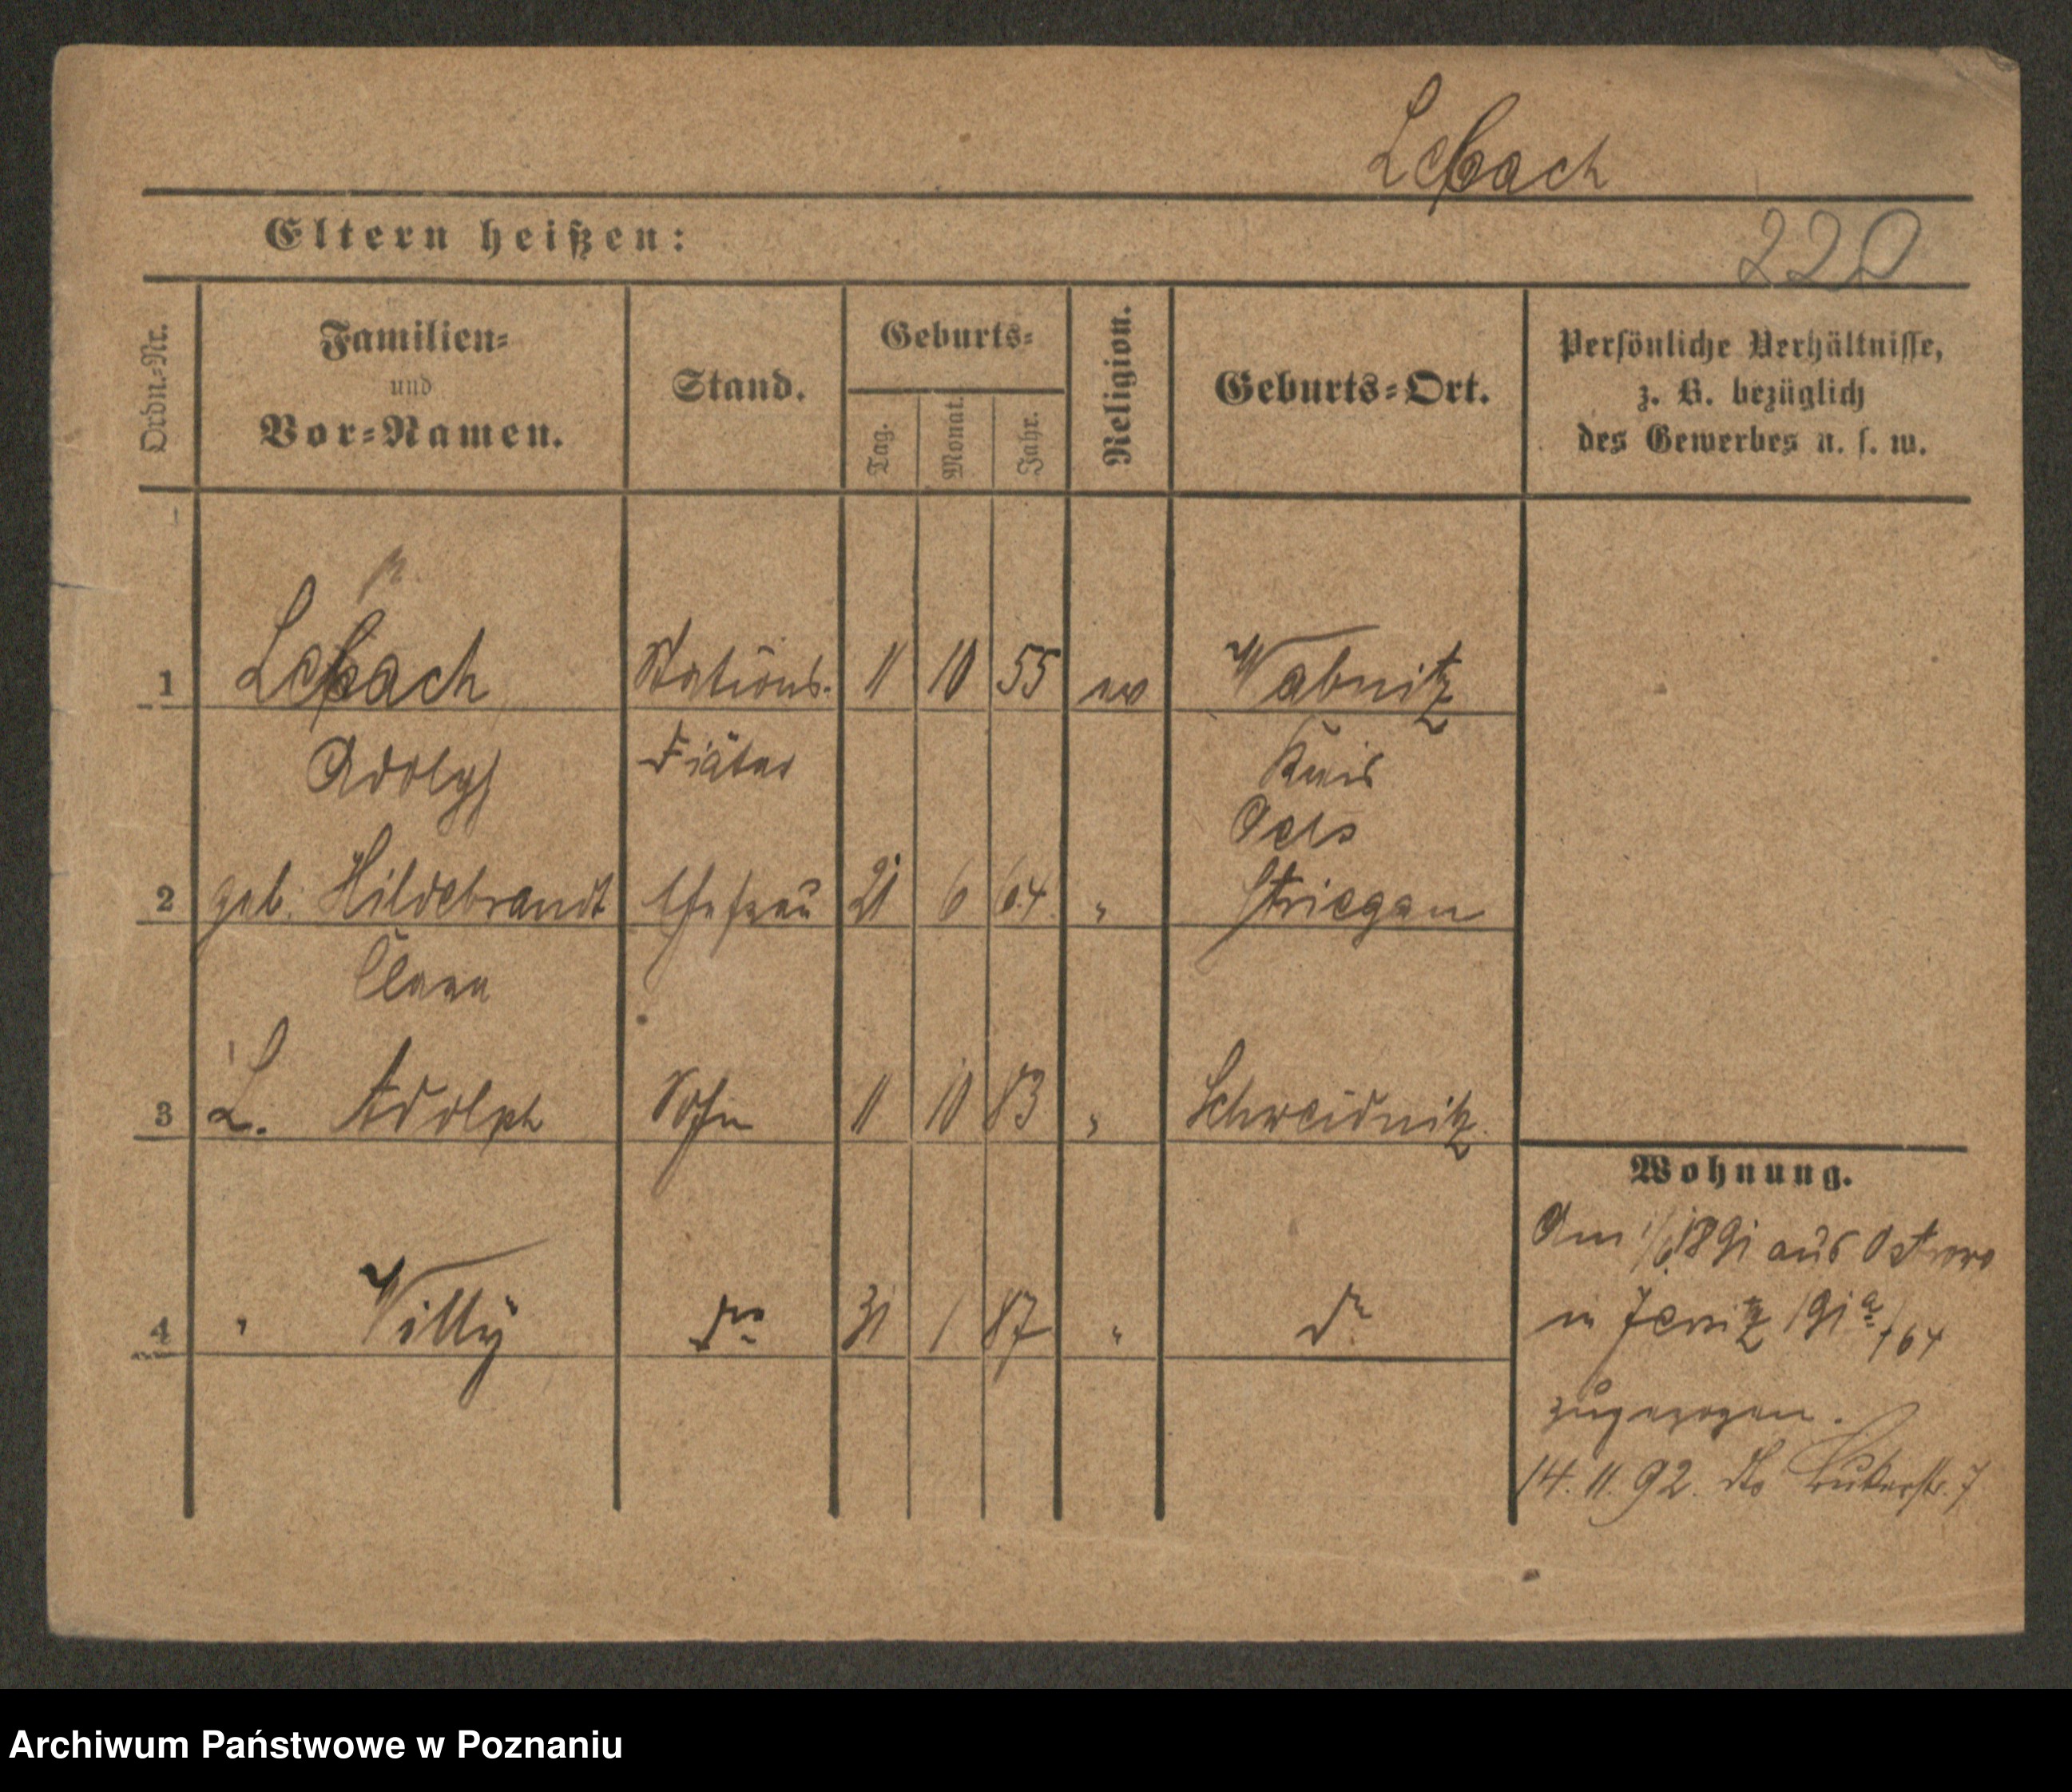 Lebach
Eltern heißen:
220
Ordn.-Nr.
Familien-
und
Vor-Namen.
Stand.
Geburts-
Tag.
Monat.
Jahr.
Religion.
Geburts-Ort.
Persönliche Verhältnisse,
z. B. bezüglich
des Gewerbes u. s. w.
1 Lebach Stations- 11 10 55 ev Wabnitz
Adolph Diätar Kreis
Oels
2 geb. Hildebrandt Ehefrau 21 6 64 " Striegau
Clara
3 L. Adolph Sohn 11 10 83 " Schweidnitz
4 " Willy do 31 1 87 " do
Wohnung.
Am 1/6 1891 aus Ostrowo
in Jersitz 191a/164
zugezogen.
14. 11. 92. dto 7
Archiwum Państwowe w Poznaniu